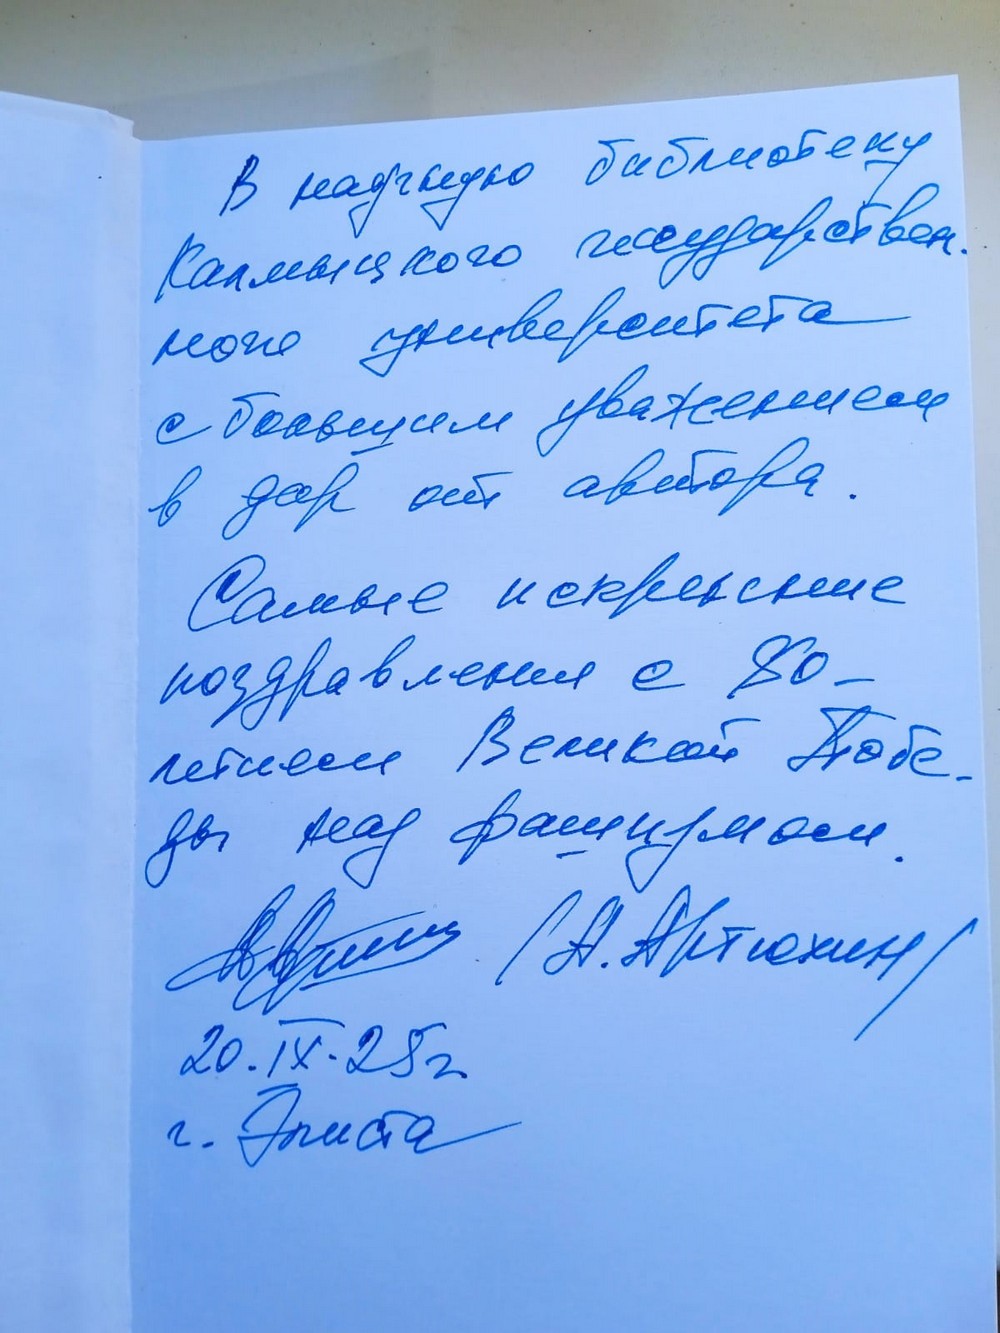 В научную библиотеку
Калмыцкого государствен-
ного университета
с большим уважением
в дар от автора.
Самые искренние
поздравления с 80-
летием Великой Побе-
ды над фашизмом.
/А. Артюхин/
20.IX.25г.
г. Элиста